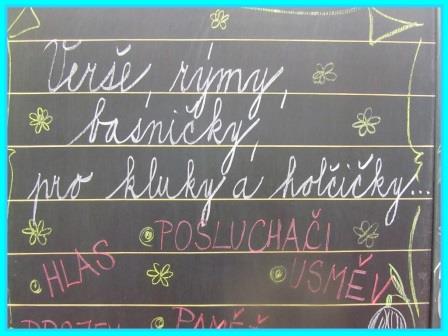 Verše, rýmy,
básničky,
pro kluky a holčičky...
POSLUCHAČI
HLAS
USMĚV